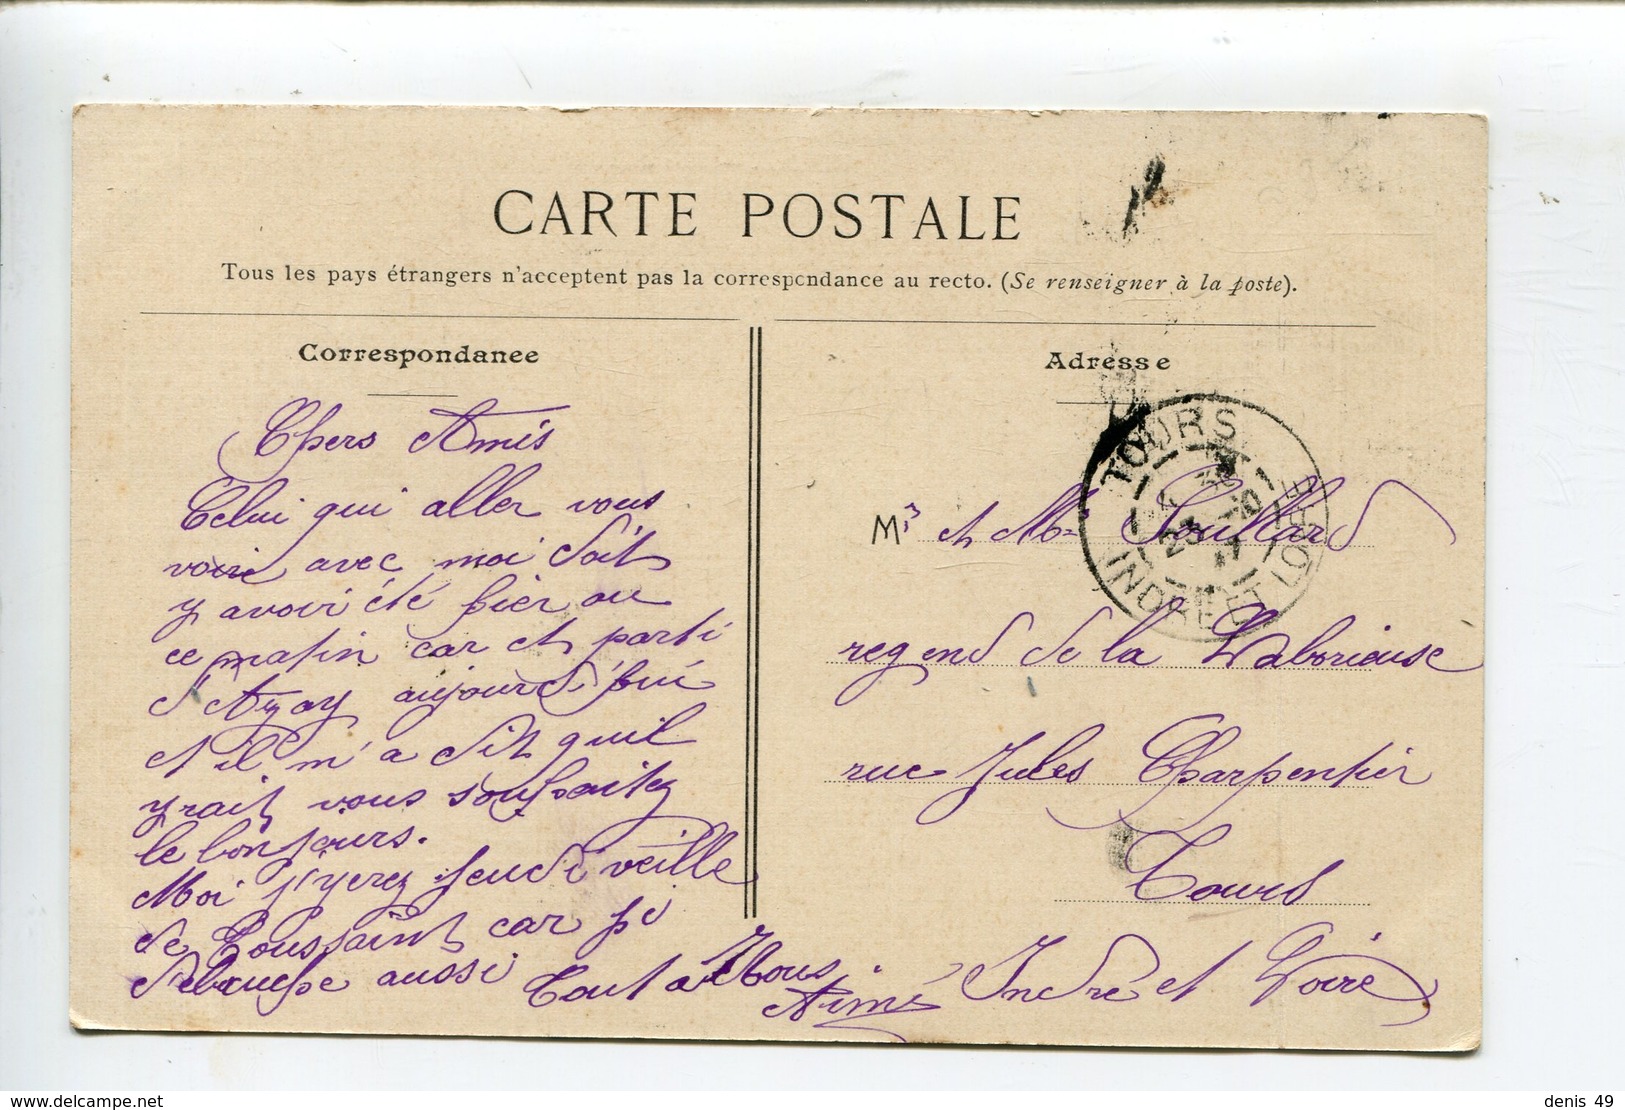 CARTE POSTALE
Tous les pays étrangers n'acceptent pas la correspondance au recto. (Se renseigner à la poste).
Correspondance
Adresse
Chers Amis
Celui qui aller vous
voire avec moi doit
y avoir été hier ou
ce matin car et parti
d'Azay aujourd'hui
et il m'a dit quil
yrait vous souhaitez
le bonjours.
Moi j'yerez Jeudi veille
de Toussaint car je
débauche aussi Tout a Vous
Aimé
TOURS
INDRE ET LOIRE
Mr et Me Soullard
regend de la Laborieuse
rue Jules Charpentier
Tours
Indre et Loire
www.delcampe.net
denis 49